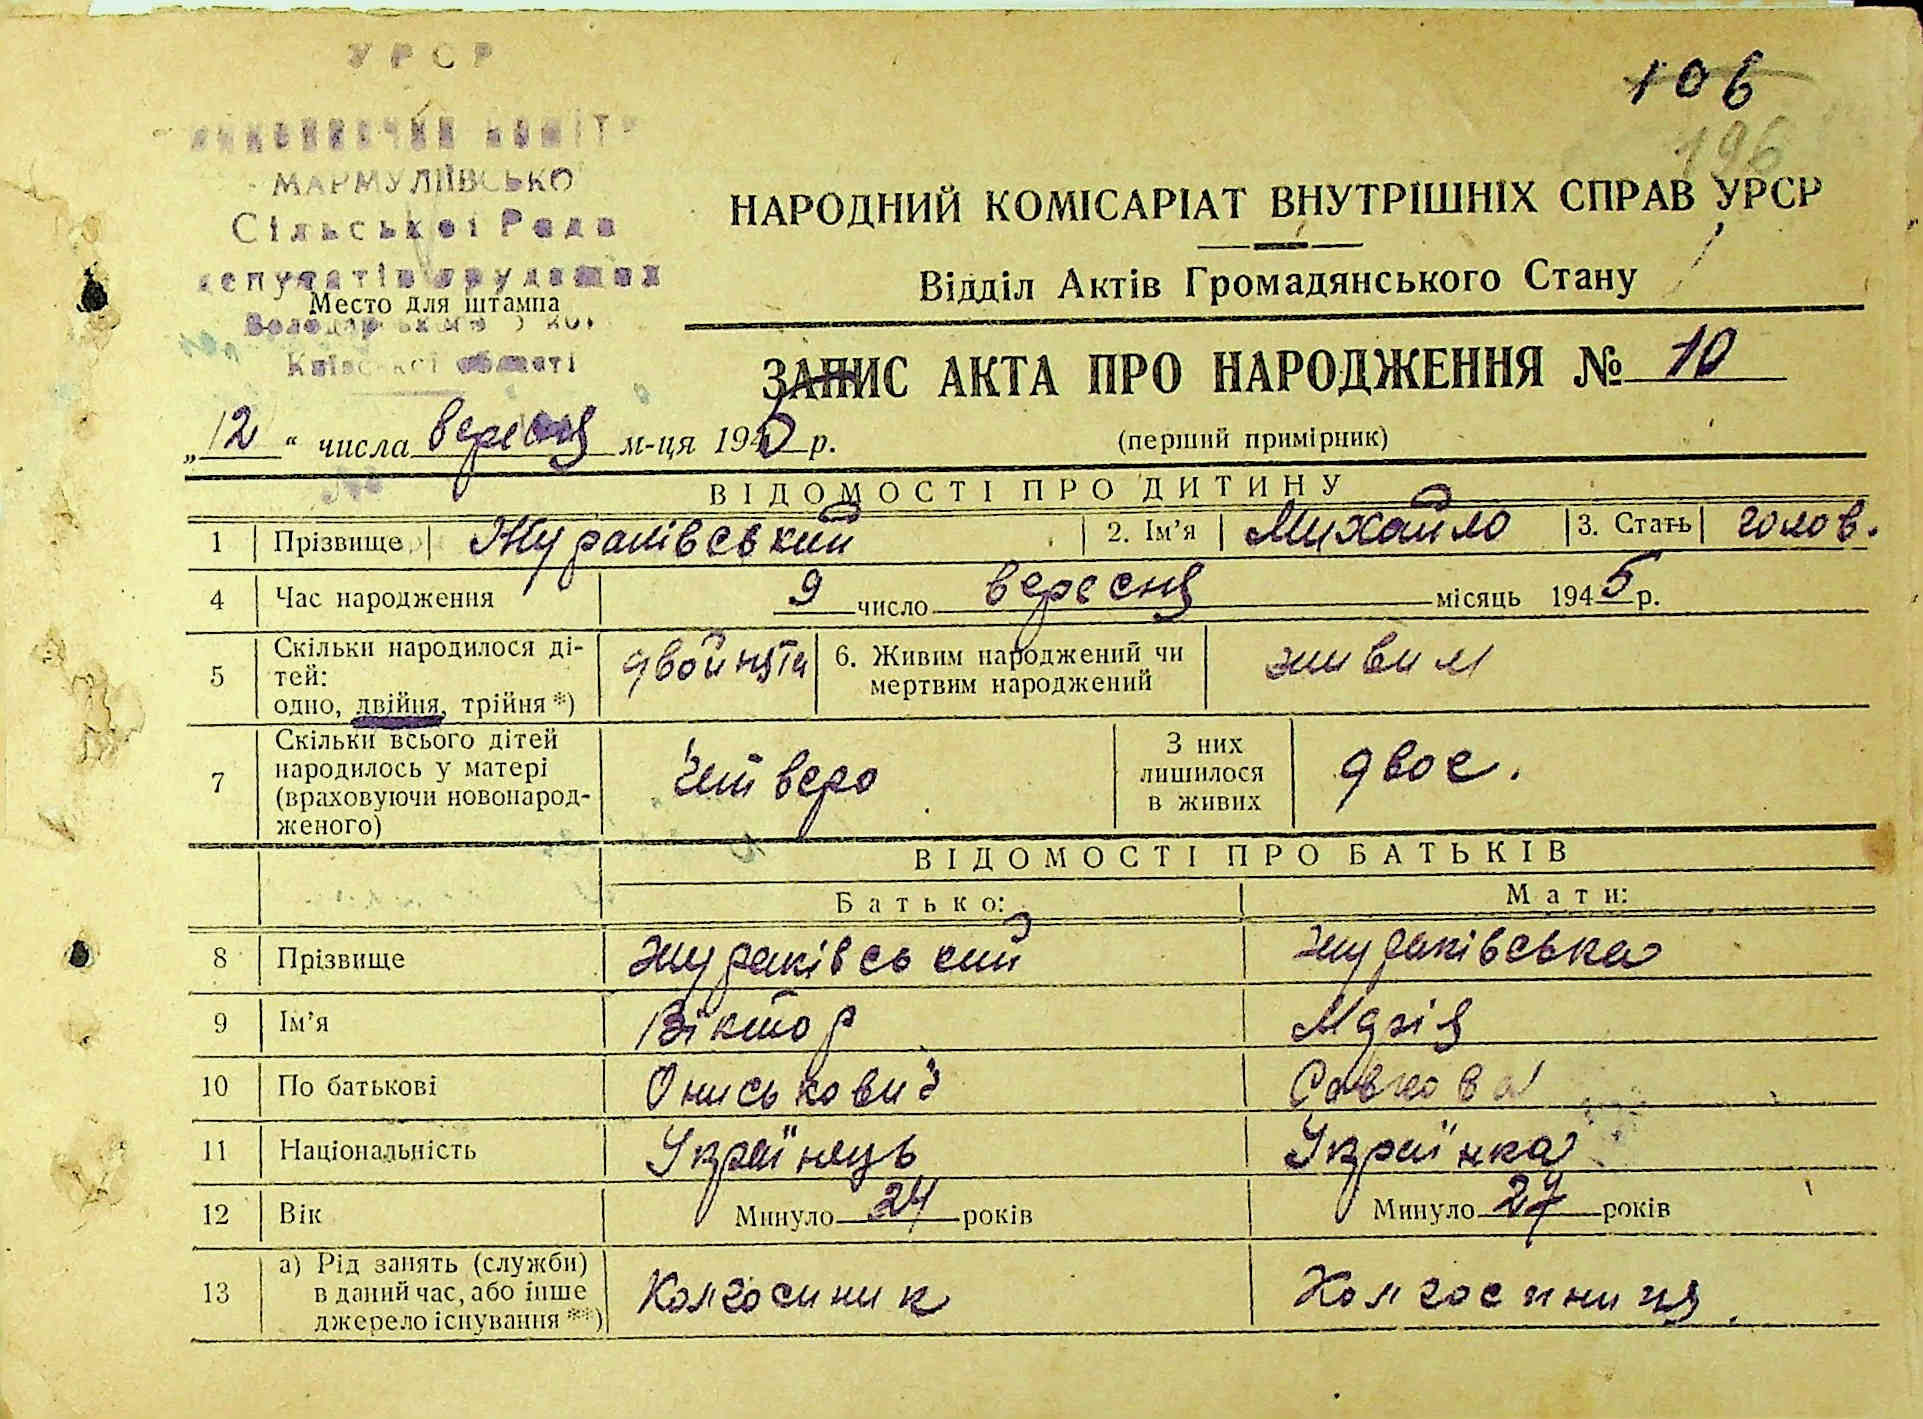 УРСР
МАРМУЛІЇВСЬКО
Сільської Рада
депутатів трудящих
Место для штампа
Київської області
106
196
НАРОДНИЙ КОМІСАРІАТ ВНУТРІШНІХ СПРАВ УРСР
Відділ Актів Громадянського Стану
ЗАПИС АКТА ПРО НАРОДЖЕННЯ № 10
„12“ числа вересня м-ця 1945 р.
(перший примірник)
ВІДОМОСТІ ПРО ДИТИНУ
1 Прізвище Жураківський 2. Ім’я Михайло 3. Стать голов.
4 Час народження 9 число вересня місяць 1945 р.
5 Скільки народилося ді-
тей:
одно, двійня, трійня *) двойнята 6. Живим народжений чи
мертвим народжений живим
7 Скільки всього дітей
народилось у матері
(враховуючи новонарод-
женого) Четверо З них
лишилося
в живих двоє.
ВІДОМОСТІ ПРО БАТЬКІВ
Батько: Мати:
8 Прізвище Жураківський Жураківська
9 Ім’я Віктор Марія
10 По батькові Ониськович Савкова
11 Національність Українець Українка
12 Вік Минуло 24 років Минуло 27 років
13 а) Рід занять (служби)
в даний час, або інше
джерело існування **) Колгоспник Колгоспниця.